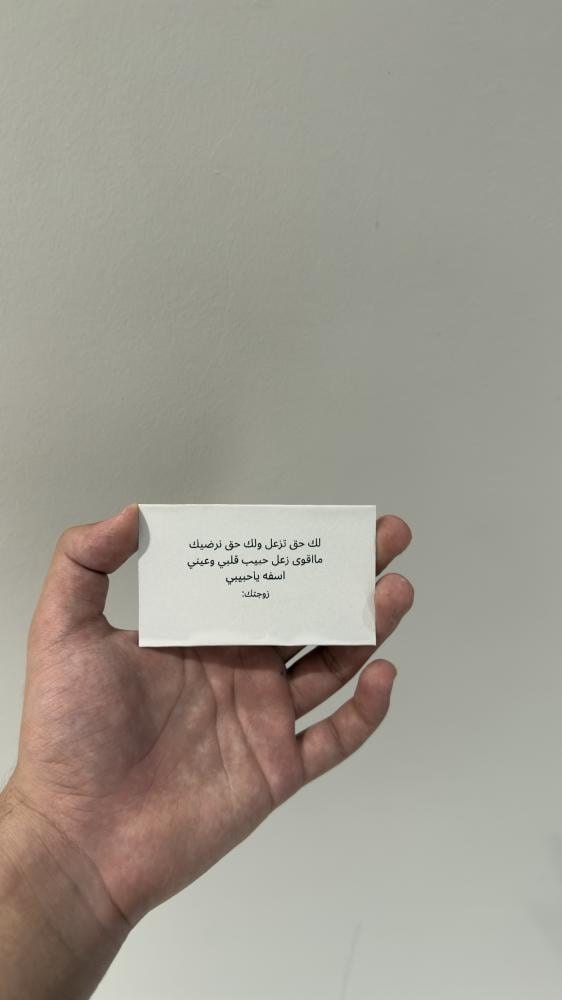 لك حق تزعل ولك حق نرضيك
مااقوى زعل حبيب قلبي وعيني
اسفه ياحبيبي
زوجتك: